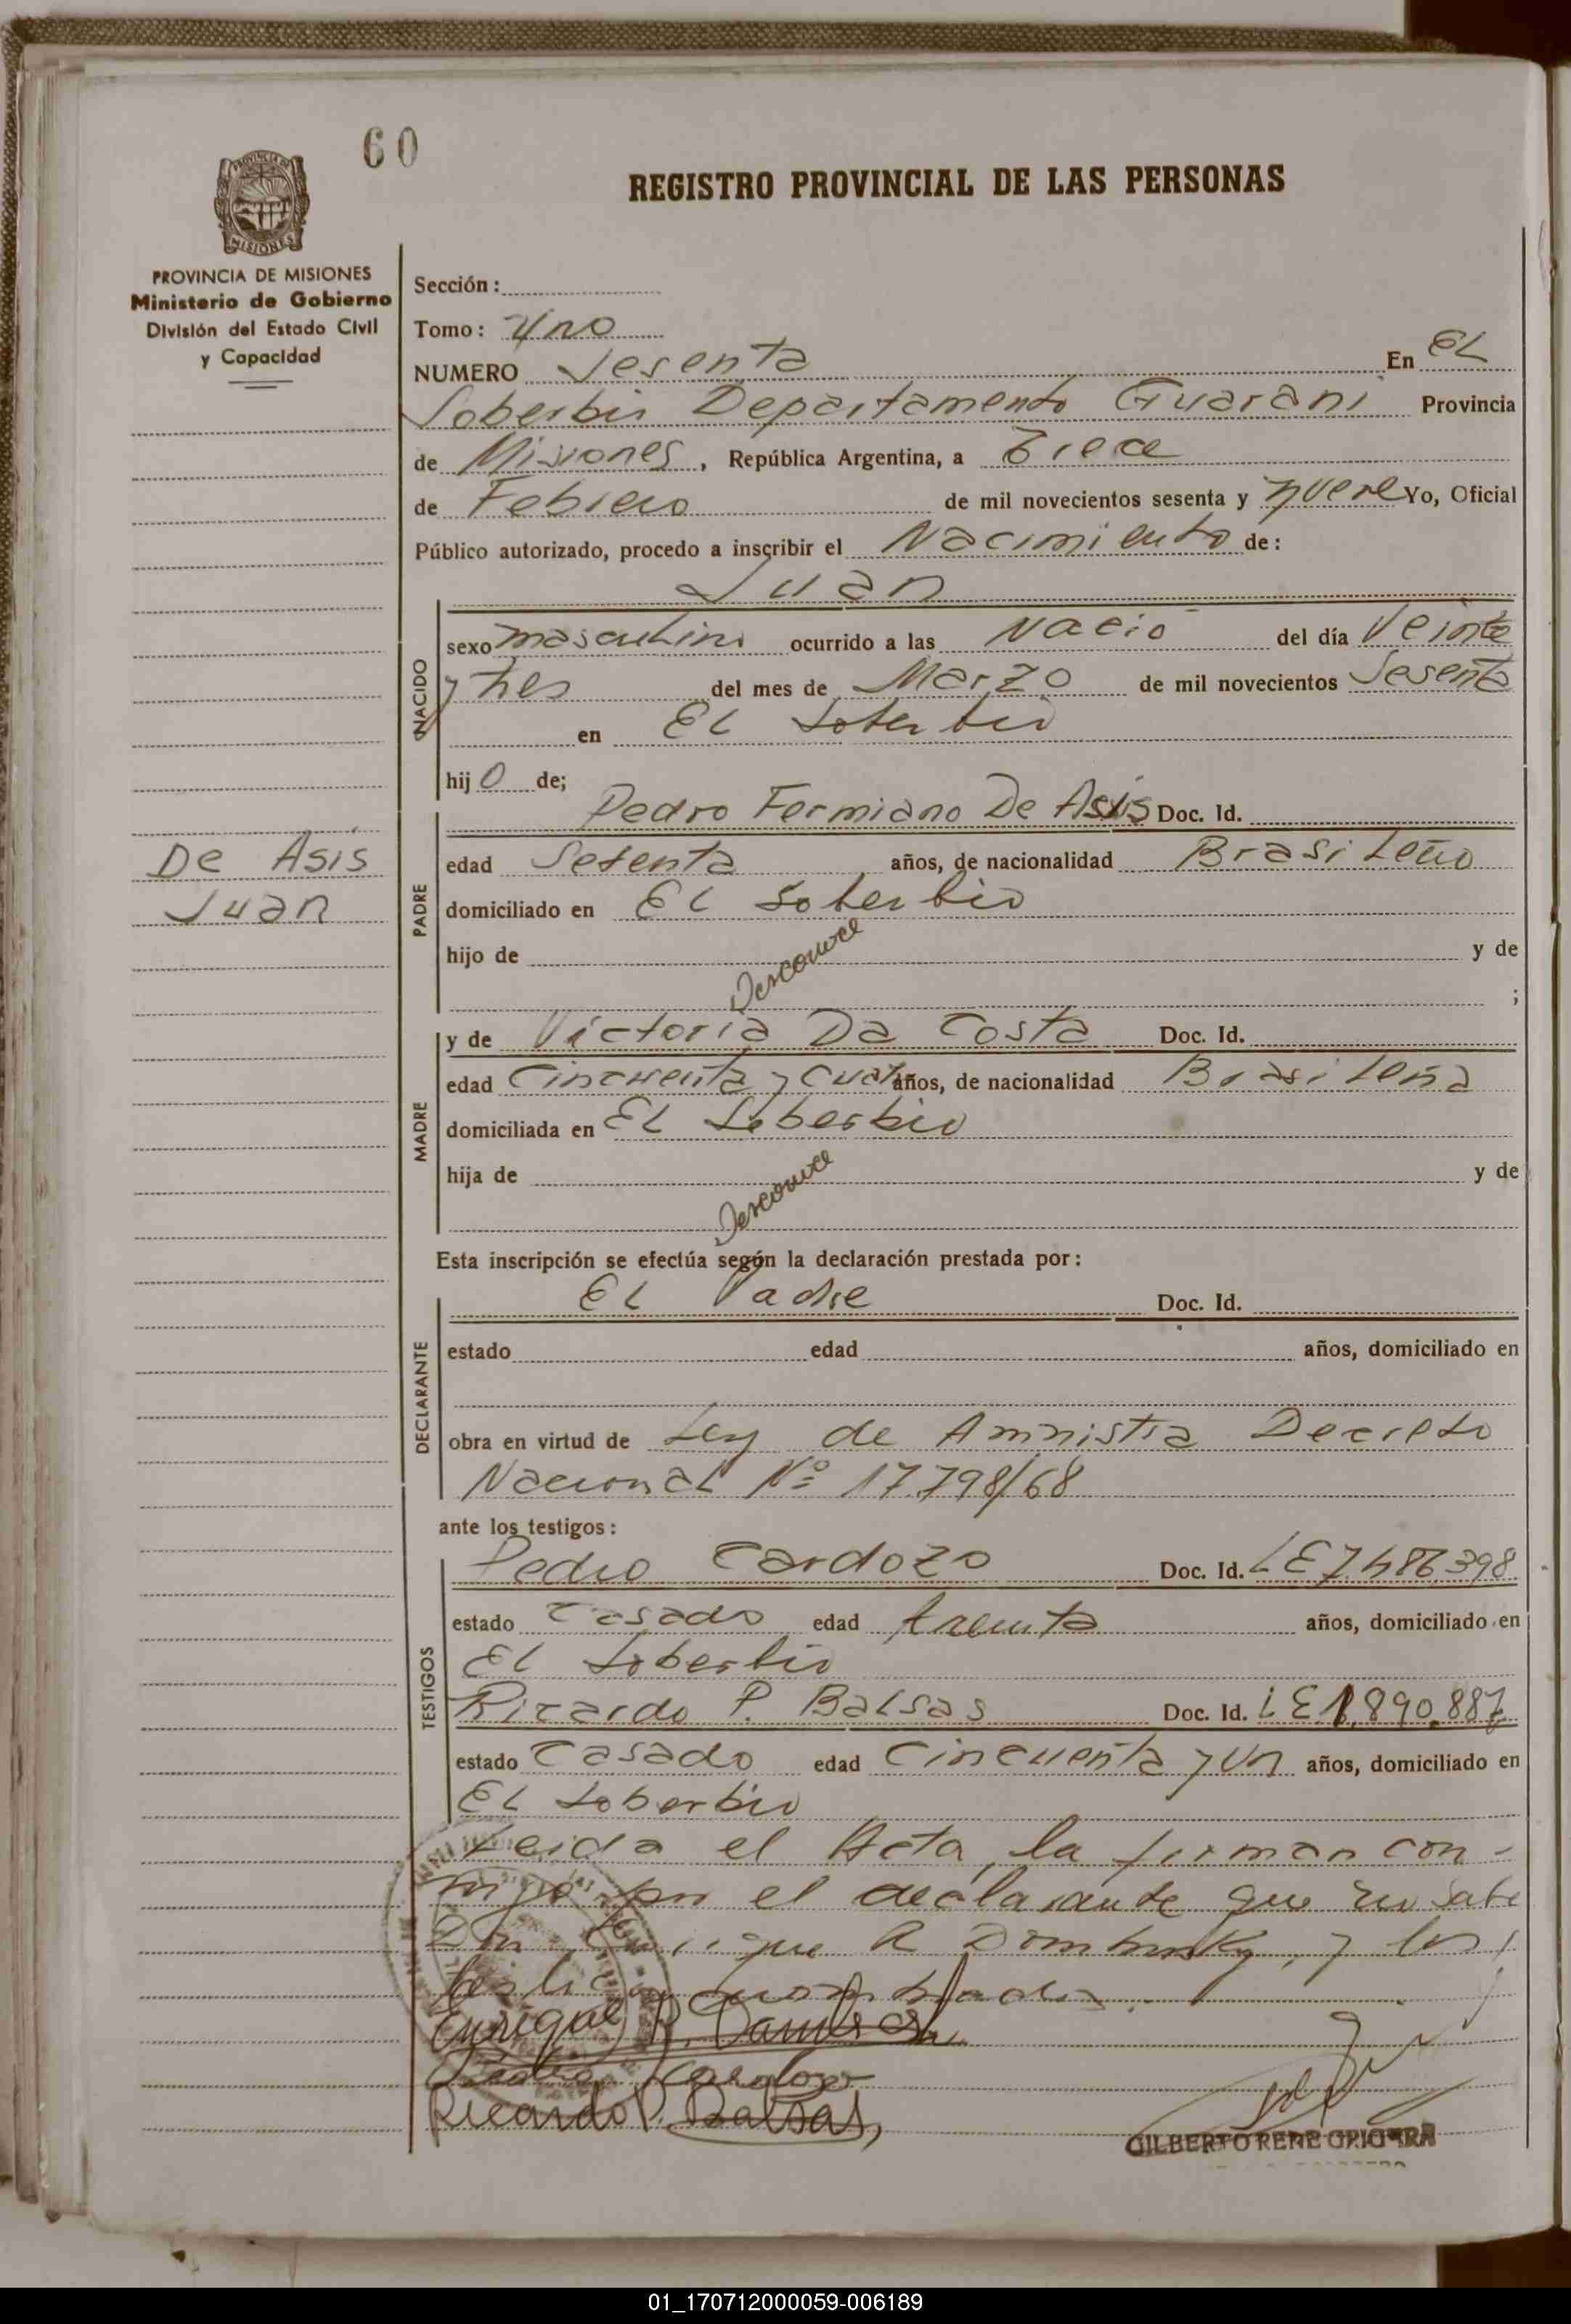 60
REGISTRO PROVINCIAL DE LAS PERSONAS
PROVINCIA DE
MISIONES
PROVINCIA DE MISIONES
Ministerio de Gobierno
División del Estado Civil
y Capacidad
Sección:
Tomo: Uno
NUMERO Sesenta En EL
Soberbio Departamento Guarani Provincia
de Misiones, República Argentina, a Trece
de Febrero de mil novecientos sesenta y nueve Yo, Oficial
Público autorizado, procedo a inscribir el Nacimiento de:
Juan
NACIDO
sexo masculino ocurrido a las Nació del día Veinte
y tres del mes de Marzo de mil novecientos Sesenta
en EL Soberbio
hij o de;
De Asis
Juan
PADRE
Pedro Fermiano De Asis Doc. Id.
edad Setenta años, de nacionalidad Brasileño
domiciliado en EL Soberbio
hijo de y de
Desconoce
;
MADRE
y de Victoria Da Costa Doc. Id.
edad Cincuenta y cuat años, de nacionalidad Brasileña
domiciliada en EL Soberbio
hija de y de
Desconoce
Esta inscripción se efectúa según la declaración prestada por:
DECLARANTE
EL Padre Doc. Id.
estado edad años, domiciliado en
obra en virtud de Ley de Amnistia Decreto
Nacional Nº 17.798/68
ante los testigos:
TESTIGOS
Pedro Cardozo Doc. Id. LE 7.486.398
estado Casado edad treinta años, domiciliado en
El Soberbio
Ricardo P. Balsas Doc. Id. LE 1.890.887
estado Casado edad Cincuenta y un años, domiciliado en
EL Soberbio
Leida el Acta, la firman con-
migo por el declarante que no sabe
Don Enrique R Dombrosky, y los
testigos nombrados.
Enrique R.
Pedro Cardozo
Ricardo P. Balsas,
GILBERTO RENE
01_170712000059-006189